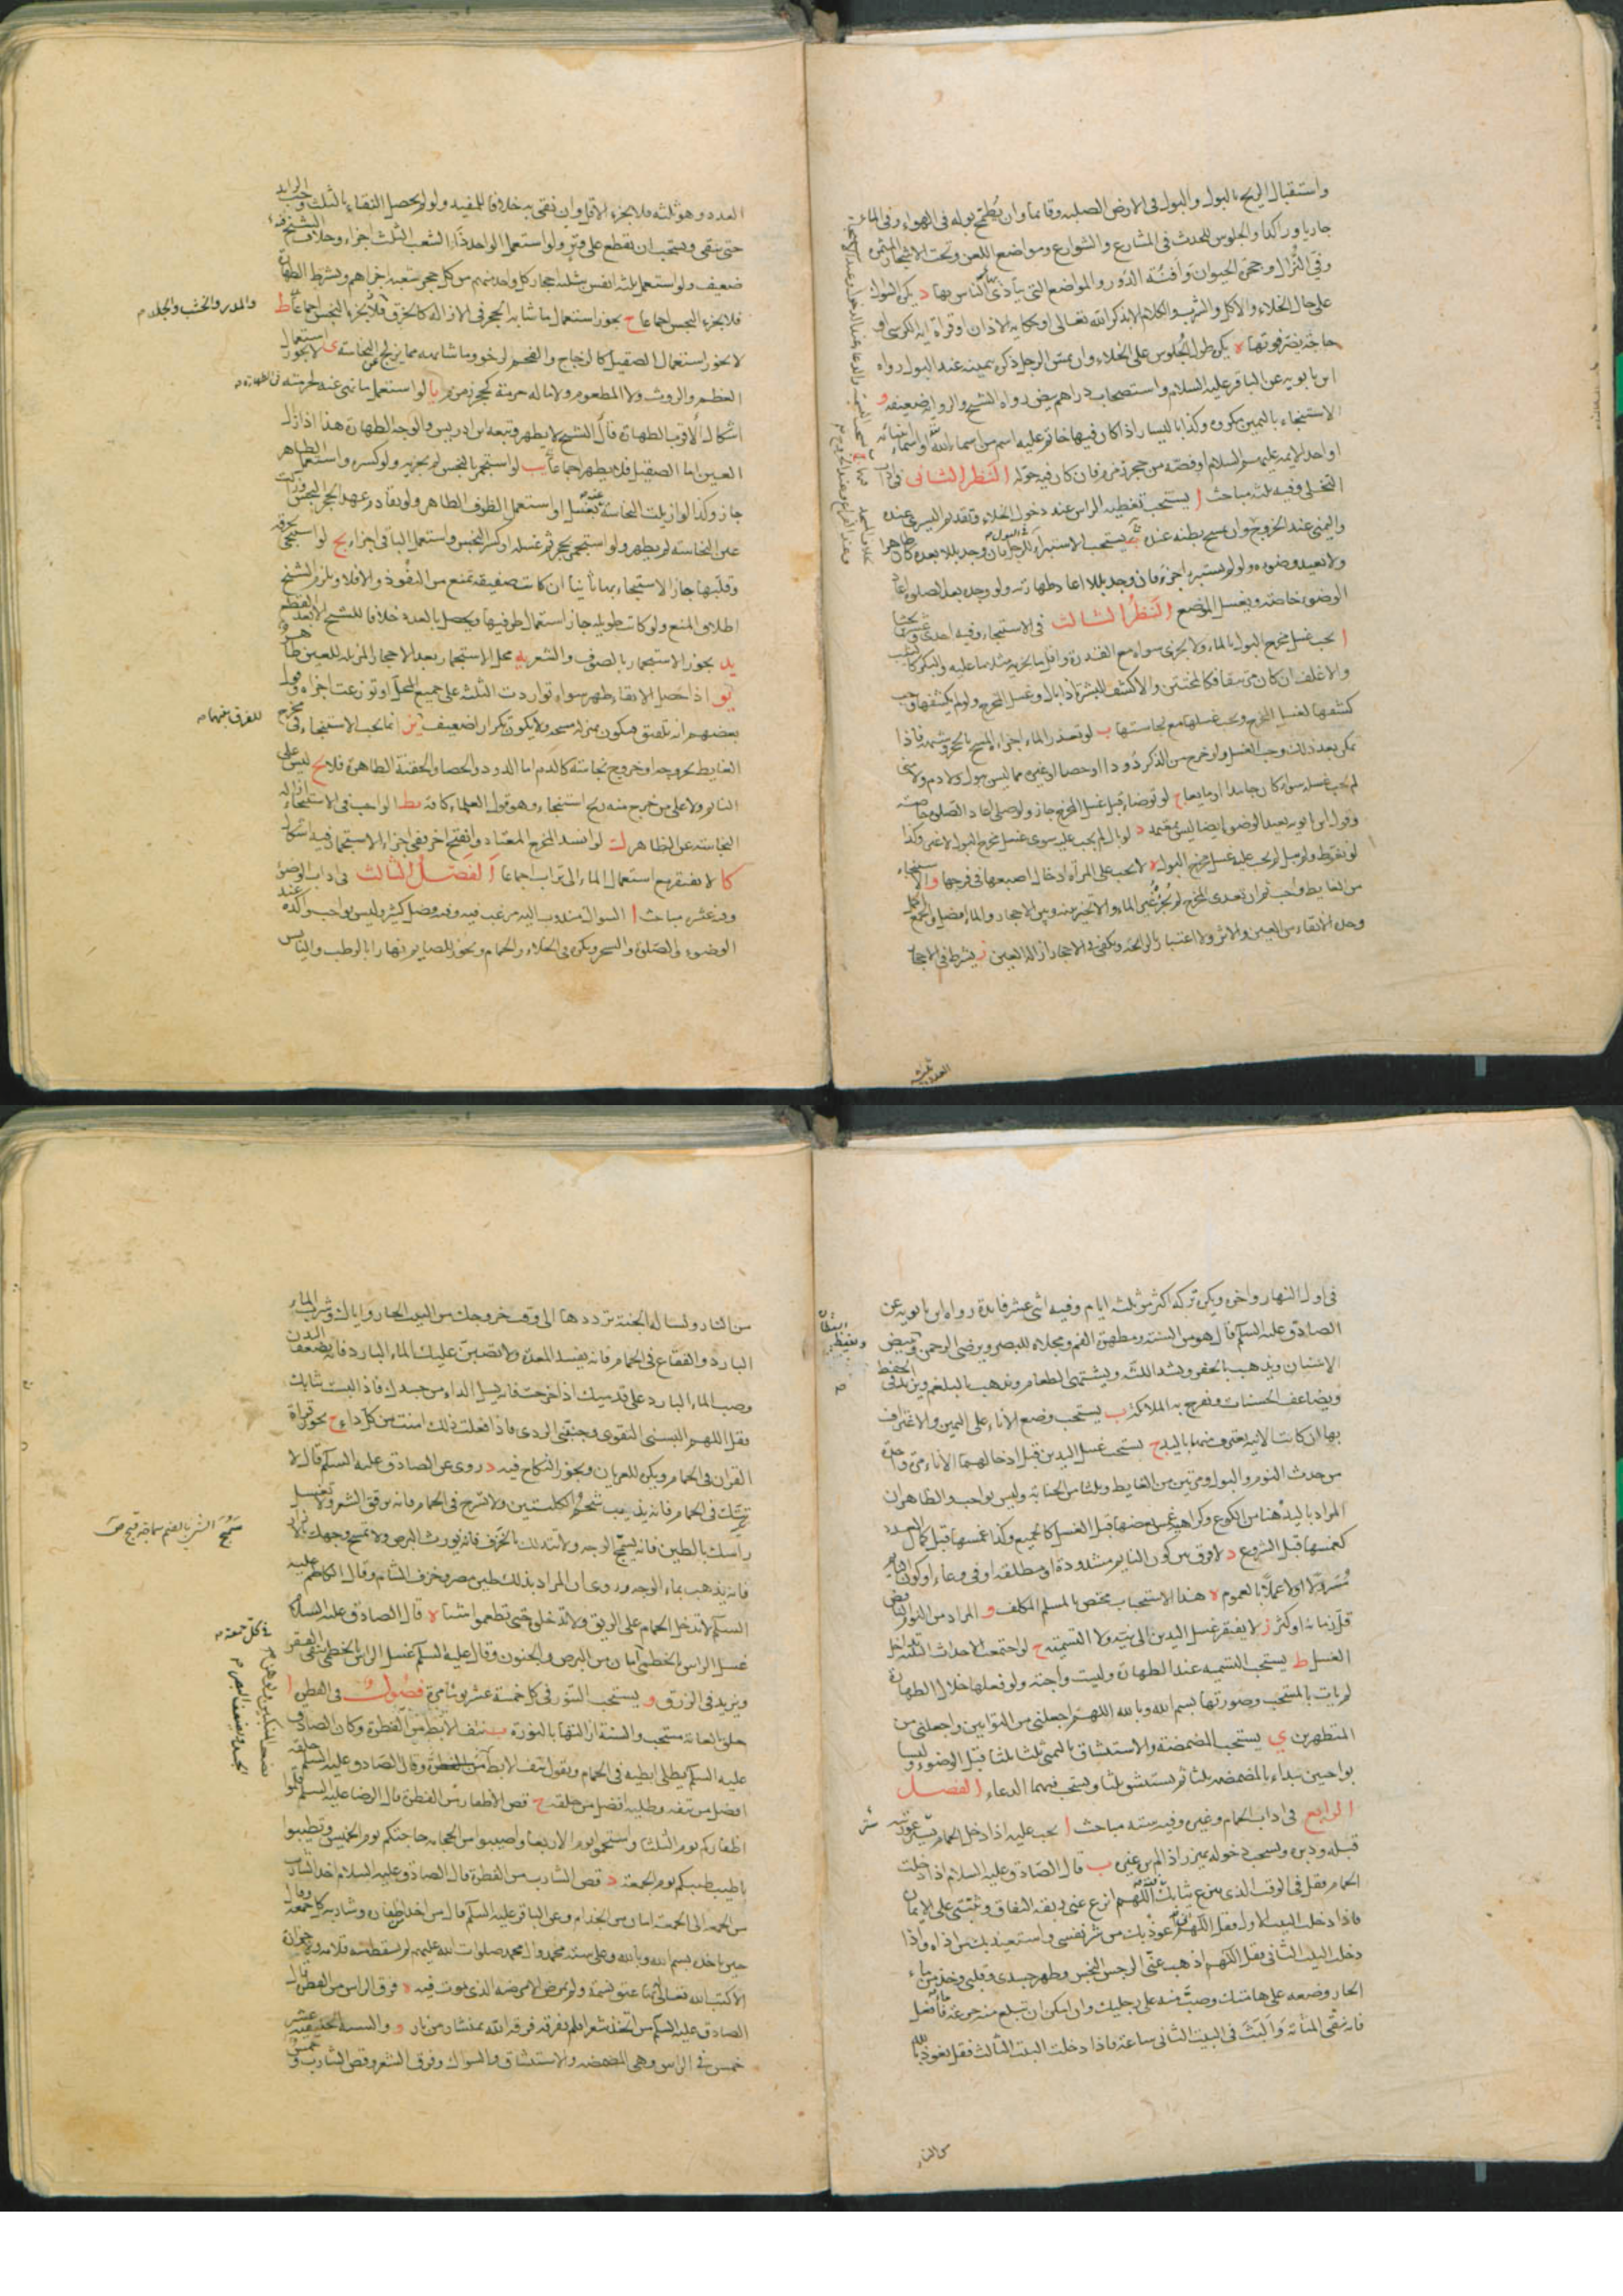 واستقبال الريح بالبول والبول في الارض الصلبة وقائما وان يُطمّح ببوله في الهواء وفي الماء
جاريا وراكدا والجلوس للحدث في المشارع والشوارع ومواضع اللعن وتحت الاشجار المثمرة
وفي النُزّال وجحرة الحيوان وافنية الدور والمواضع التي يتأذى الناس بها د يكره السواك
على حال الخلاء والاكل والشرب والكلام الا بذكر الله تعالى او حكاية الاذان او قراءة اية الكرسي او
حاجة يضر فوتها ه يكره طول الجلوس على الخلاء وان يمس الرجل ذكره بيمينه عند البول رواه
ابن بابويه عن الباقر عليه السلام واستصحاب دراهم بيض رواه الشيخ والرواية ضعيفة و
الاستنجاء باليمين مكروه وكذا باليسار اذا كان فيها خاتم عليه اسم من اسماء الله او اسماء انبيائه
او احد الايمة عليهم السلام او فصه من حجر زمزم فان كان فيه حوّله النظر الثاني في اداب
التخلي وفيه ثلثة مباحث ا يستحب تغطية الراس عند دخول الخلاء وتقديم اليسرى عنده
واليمنى عند الخروج وان يمسح بطنه عنده ب يستحب الاستبراء للرجل فان وجد بللا بعده كان طاهرا
ولا يعيد وضوءه ولو لم يستبرء اجزء فان وجد بللا اعاد طهارته ولو وجده بعد الصلوة اعاد
الوضوء خاصة ويغسل الموضع النظر الثالث في الاستنجاء وفيه احد وعشرون بحثا
ا يجب غسل مخرج البول بالماء ولا يجزي سواه مع القدرة واقل ما يجزيه مثلا ما عليه والبكر كالثيب
والاغلف ان كان مرتتقا فكالمختتن والا كشف البشرة اذا بال وغسل المخرج ولو لم يكشفها وجب
كشفها لغسل المخرج ويجب غسلها مع نجاستها ب لو تعذر الماء اجزاء المسح بالحجر وشبهه فاذا
تمكن بعد ذلك وجب الغسل ولو خرج من الذكر دُود او حصا او غيره مما ليس ببول ولا دم ولا مني
لم يجب غسله سواء كان جامدا او مايعا ج لو توضاء قبل غسل المخرج جاز ولو صلى اعاد الصلوة خاصة
وقول ابن بابويه يعيد الوضوء ايضا ليس بمعتمد د لو بال لم يجب عليه سوى غسل مخرج البول لا غير وكذا
لو تغوط ولم يبل لم يجب عليه غسل مخرج البول ه لا يجب على المرأة ادخال اصبعها في فرجها و الاستنجاء
من الغايط واجب فان تعدى المخرج لم يُجز غير الماء والا تخير بينه وبين الاحجار والماء افضل والجمع اكمل
وحده الانقاء من العين والاثر ولا اعتبار بالرائحة ويكفي في الاحجار ازالة العين ز يشترط في الاحجار
العدد وهو ثلثة
العدد وهو ثلثة فلا يجزء الاقل وان نقى به خلافا للمفيد ولو لم يحصل النقاء بالثلث وجب الزايد
حتى ينقى ويستحب ان يقطع على وتر ولو استعمل الواحد ذا الشعب الثلث اجزاء وخلاف الشيخ فيه
ضعيف ولو استعمل ثلثة انفس ثلثة احجار كل واحد منهم من كل حجر شعبة اجزاهم ويشترط الطهارة
فلا يجزء النجس اجماعا ح يجوز استعمال ما شابه الحجر في الازالة كالخرق فلا يجزء النجس اجماعا ط
والمدر والخشب والجلد م
لا يجوز استعمال الصقيل كالزجاج والفحم الرخو وما شابهه مما يزلج عن النجاسة ى لا يجوز استعمال
العظم والروث ولا المطعوم ولا ما له حرمة كحجر زمزم يا لو استعمل ما نهى عنه لحرمته ففي الطهارة م
اشكال الاقرب الطهارة قال الشيخ لا يطهر وتبعه ابن ادريس والوجه الطهارة هذا اذا زالت
العين اما الصقيل فلا يطهر اجماعا يب لو استجمر بالنجس لم يجزيه ولو كسره واستعمل الطاهر
جاز وكذا لو ازيلت النجاسة عنه بغسل او استعمل الطرف الطاهر ولو تقادم عهد الحجر النجس وزالت
عين النجاسة لم يطهر ولو استجمر بحجر ثم غسله او كسر النجس واستعمل الباقي اجزاء يج لو استنجى بخرقة
وقلبها جاز الاستنجاء بها ثانيا ان كانت صفيقة تمنع من النفوذ والا فلا ويلزم الشيخ
اطلاق المنع ولو كانت طويلة جاز استعمال طرفيها ويحصل بالعدد خلافا للشيخ الا بعد القطع
يد يجوز الاستجمار بالصوف والشعر يه محل الاستجمار بعد الاحجار المزيلة للعين طاهر
يو اذا حصل الانقاء طهر سواء تواردت الثلثة على جميع المحل او توزعت اجزاه وقول
بعضهم انه تلفيق فيكون بمنزلة مسحة ولا يكون تكرارا ضعيف يز انما يجب الاستنجاء في مخرج
للفرق بينهما م
الغايط بخروجه او خروج نجاسة كالدم اما الدود والحصا والحقنة الطاهرة فلا يح ليس على
النايم ولا على من خرج منه ريح استنجاء وهو قول العلماء كافة يط الواجب في الاستنجاء ازالة
النجاسة عن الظاهر ك لو انسد المخرج المعتاد وانفتح اخر ففي اجزاء الاستجمار فيه اشكال
كا لا يفتقر مع استعمال الماء الى تراب اجماعا الفصل الثالث في اداب الوضوء
وفيه عشرة مباحث ا السواك مندوب اليه مرغب فيه وفيه فضل كثير وليس بواجب واكده عند
الوضوء والصلوة والسحر ويكره في الخلاء والحمام ويجوز للصايم نهارا بالرطب واليابس
في اول النهار واخره ويكره تركه اكثر من ثلثة ايام وفيه اثنى عشر فايدة رواه ابن بابويه عن
الصادق عليه السلم قال هو من السنة ومطهرة الفم ومجلاة للبصر ويرضي الرحمن ويبيض
الاسنان ويذهب بالحفر ويشد اللثة ويشهي الطعام ويذهب بالبلغم ويزيد في الحفظ
ويضاعف الحسنات وتفرح به الملائكة ب يستحب وضع الاناء على اليمين والاغتراف
بها ان كانت الانية يغترف منها باليد ج يستحب غسل اليدين قبل ادخالهما الاناء مرة واحدة
من حدث النوم والبول ومرتين من الغايط وثلثا من الجنابة وليس بواجب والظاهر ان
المراد باليد هنا من الكوع وكراهية غمس بعضها قبل الغسل كالجميع وكذا غمسها قبل كمال العدد
كغمسها قبل الشروع د لا فرق بين كون النايم مشدودة او مطلقة او في وعاء او كون النايم
مُسَرولا او لا عملا بالعموم ه هذا الاستحباب مختص بالمسلم المكلف و المراد من النوم الناقض
قل زمانه او كثر ز لا يفتقر غسل اليدين الى نية ولا التسمية ح لو اجتمعت الاحداث الثلثة تداخل
الغسل ط يستحب التسمية عند الطهارة وليست واجبة ولو فعلها خلال الطهارة
لم يات بالمستحب وصورتها بسم الله وبالله اللهم اجعلني من التوابين واجعلني من
المتطهرين ي يستحب المضمضة والاستنشاق باليمنى ثلثا ثلثا قبل الوضوء وليسا
بواجبين يبداء بالمضمضة ثلثا ثم يستنشق ثلثا ويستحب فيهما الدعاء الفصل
الرابع في اداب الحمام وغيره وفيه ستة مباحث ا يجب عليه اذا دخل الحمام ستر عورته
قبله ودبره ويستحب دخوله بميزر اذا لم يره غيره ب قال الصادق عليه السلام اذا دخلت
الحمام فقل في الوقت الذي تنزع ثيابك اللهم انزع عني ربقة النفاق وثبتني على الايمان
فاذا دخلت البيت الاول فقل اللهم اني اعوذ بك من شر نفسي واستعيذ بك من اذاه واذا
دخلت البيت الثاني فقل اللهم اذهب عني الرجس النجس وطهر جسدي وقلبي وخذ من الماء
الحار وضعه على هامتك وصب منه على رجليك وان امكن ان تبلع منه جرعة فافعل
فانه ينقي المثانة والبث في البيت الثاني ساعة فاذا دخلت البيت الثالث فقل نعوذ بالله
من النار
من النار ونسأله الجنة ترددها الى وقت خروجك من البيت الحار واياك وشرب الماء
البارد والفقاع في الحمام فانه يفسد المعدة ولا تصبن عليك الماء البارد فانه يضعف البدن
وصب الماء البارد على قدميك اذا خرجت فانه يسل الداء من جسدك فاذا لبست ثيابك
فقل اللهم البسني التقوى وجنبني الردى فاذا فعلت ذلك امنت من كل داء ج يجوز قراءة
القران في الحمام ويكره للعريان ويجوز النكاح فيه د روى عن الصادق عليه السلم قال لا
تتك في الحمام فانه يذيب شحم الكليتين ولا تسرح في الحمام فانه يرقق الشعر ولا تغسل
راسك بالطين فانه يسمّج الوجه ولا تتدلك بالخزف فانه يورث البرص ولا تمسح وجهك بالازار
سَمُجَ الشئ بالضم سماجة قبح ص
فانه يذهب بماء الوجه وروى ان المراد بذلك طين مصر وخزف الشام وقال الكاظم عليه
السلم لا تدخل الحمام على الريق ولا تدخلوه حتى تطعموا شيئا ه قال الصادق عليه السلم
غسل الراس بالخطمى امان من البرص والجنون وقال عليه السلم غسل الراس بالخطمى ينفي الفقر
في كل جمعة م
ويزيد في الرزق و يستحب التنور في كل خمسة عشر يوما مرة فصول في الفطرة ا
حلق العانة مستحب والسنة ازالتها بالنورة ب نتف الابط من الفطرة وكان الصادق
عليه السلم يطلي ابطيه في الحمام ويقول نتف الابط يضعف وقال الصادق عليه السلم حلقه
افضل من نتفه وطليه افضل من حلقه ج قص الاظفار من الفطرة قال الرضا عليه السلم قلموا
اظفاركم يوم الثلثا واستحموا يوم الاربعا واصيبوا من الحجامة حاجتكم يوم الخميس وتطيبوا
باطيب طيبكم يوم الجمعة د قص الشارب من الفطرة قال الصادق عليه السلام اخذ الشارب
من الجمعة الى الجمعة امان من الجذام وعن الباقر عليه السلم قال من اخذ اظفاره وشاربه كل جمعة وقال
حين ياخذه بسم الله وبالله وعلى سنة محمد وال محمد صلوات الله عليهم لم يسقط منه قلامة ولا جزازة
الا كتب الله تعالى له بها عتق نسمة ولم يمرض الا مرضه الذي يموت فيه ه فرق الراس من الفطرة قال
الصادق عليه السلم من اتخذ شعرا فلم يفرقه فرقه الله بمنشار من نار و والسنة الحنيفية عشر
خمس في الراس وهي المضمضة والاستنشاق والسواك وفرق الشعر وقص الشارب وخمس